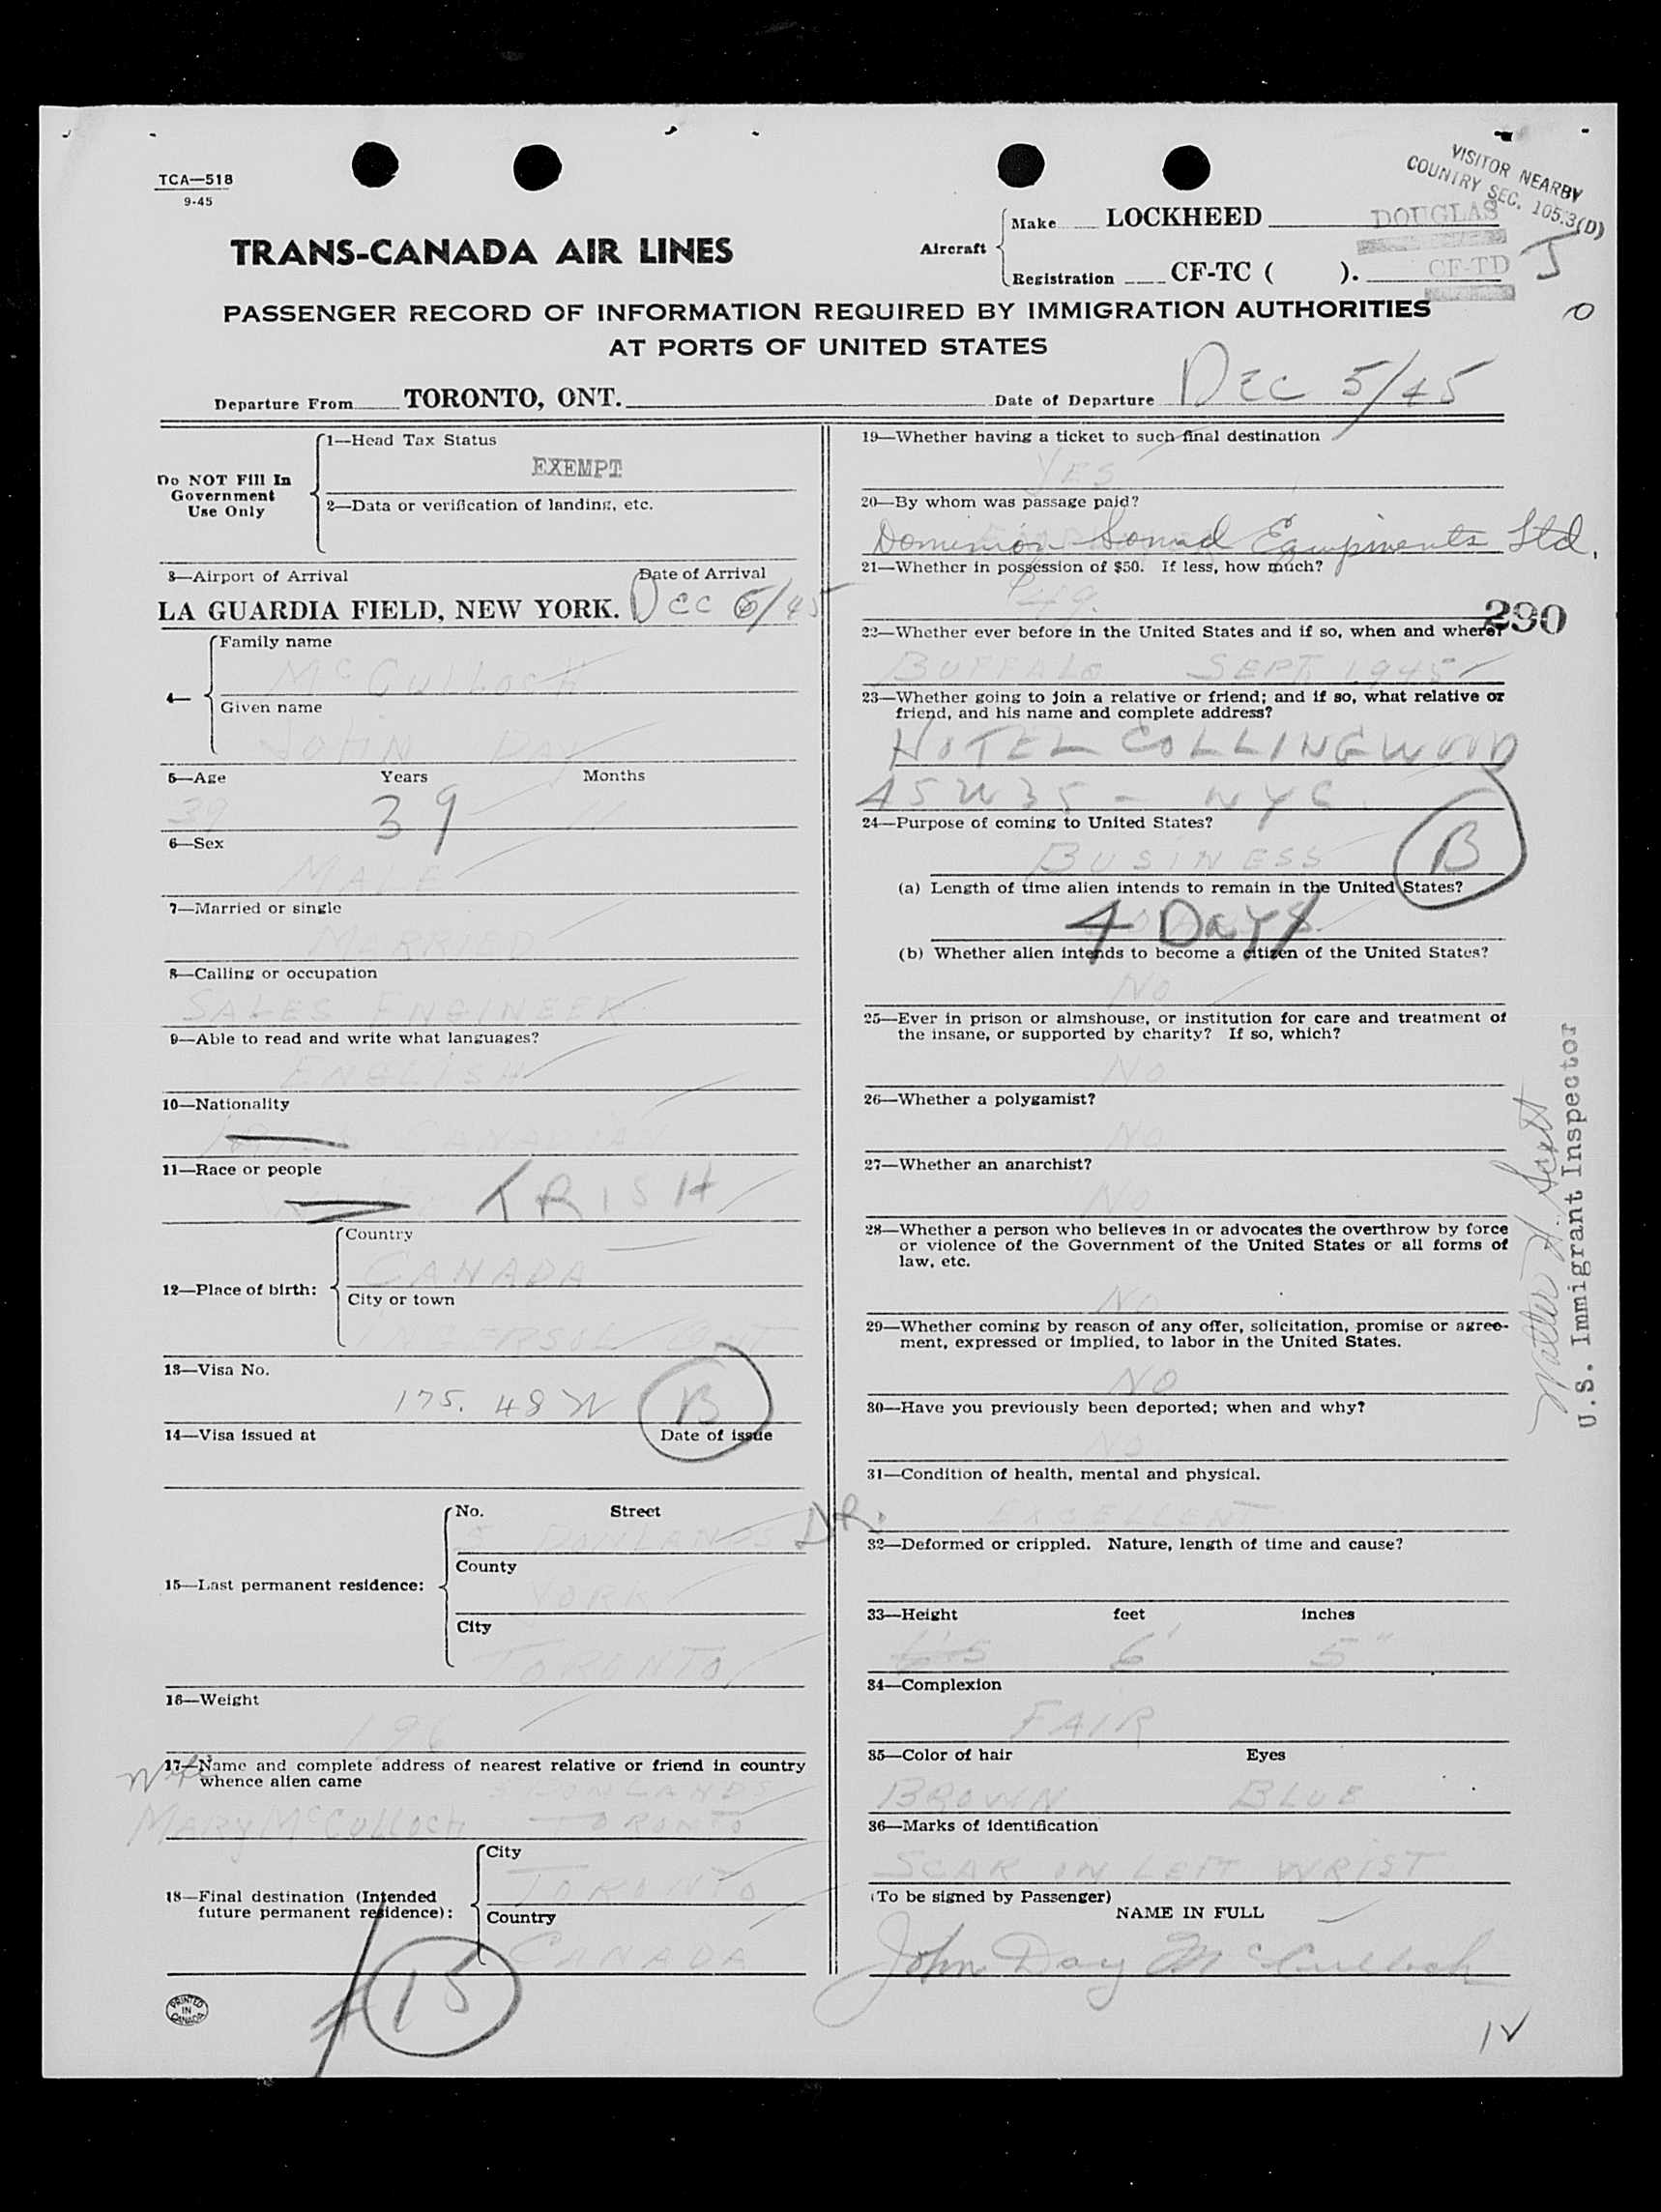 TCA—518
9-45
VISITOR NEARBY
COUNTRY SEC. 105.3(D)
TRANS-CANADA AIR LINES
Aircraft
Make LOCKHEED DOUGLAS
Registration CF-TC ( ). CF-TD
J
PASSENGER RECORD OF INFORMATION REQUIRED BY IMMIGRATION AUTHORITIES
AT PORTS OF UNITED STATES
Departure From TORONTO, ONT. Date of Departure DEC 5/45
Do NOT Fill In
Government
Use Only
1—Head Tax Status
EXEMPT
2—Data or verification of landing, etc.
3—Airport of Arrival Date of Arrival
LA GUARDIA FIELD, NEW YORK. DEC 5/45
4—
Family name
McCULLOCH
Given name
JOHN DAY
5—Age Years Months
39 39 11
6—Sex
MALE
7—Married or single
MARRIED
8—Calling or occupation
SALES ENGINEER
9—Able to read and write what languages?
ENGLISH
10—Nationality
CANADIAN
11—Race or people
IRISH
12—Place of birth:
Country
CANADA
City or town
INGERSOLL ONT
13—Visa No.
175. 48 W B
14—Visa issued at Date of issue
15—Last permanent residence:
No. Street
5 DONLANDS DR.
County
YORK
City
TORONTO
16—Weight
196
17—Name and complete address of nearest relative or friend in country
whence alien came
Wife
5 DONLANDS
MARY McCULLOCH TORONTO
18—Final destination (Intended
future permanent residence):
City
TORONTO
Country
CANADA
15
PRINTED
IN
CANADA
19—Whether having a ticket to such final destination
YES
20—By whom was passage paid?
Dominion Sound Equipments Ltd.
21—Whether in possession of $50. If less, how much?
290
22—Whether ever before in the United States and if so, when and where?
BUFFALO SEPT 1945
23—Whether going to join a relative or friend; and if so, what relative or
friend, and his name and complete address?
HOTEL COLLINGWOOD
45 W 35 - NYC.
24—Purpose of coming to United States?
BUSINESS B
(a) Length of time alien intends to remain in the United States?
4 Days
(b) Whether alien intends to become a citizen of the United States?
NO
25—Ever in prison or almshouse, or institution for care and treatment of
the insane, or supported by charity? If so, which?
NO
26—Whether a polygamist?
NO
27—Whether an anarchist?
NO
28—Whether a person who believes in or advocates the overthrow by force
or violence of the Government of the United States or all forms of
law, etc.
NO
29—Whether coming by reason of any offer, solicitation, promise or agree-
ment, expressed or implied, to labor in the United States.
NO
30—Have you previously been deported; when and why?
NO
31—Condition of health, mental and physical.
EXCELLENT
32—Deformed or crippled. Nature, length of time and cause?
33—Height feet inches
6'5 6' 5"
34—Complexion
FAIR
35—Color of hair Eyes
BROWN BLUE
36—Marks of identification
SCAR ON LEFT WRIST
(To be signed by Passenger)
NAME IN FULL
John Day McCulloch
Walter H. Scott
U.S. Immigrant Inspector